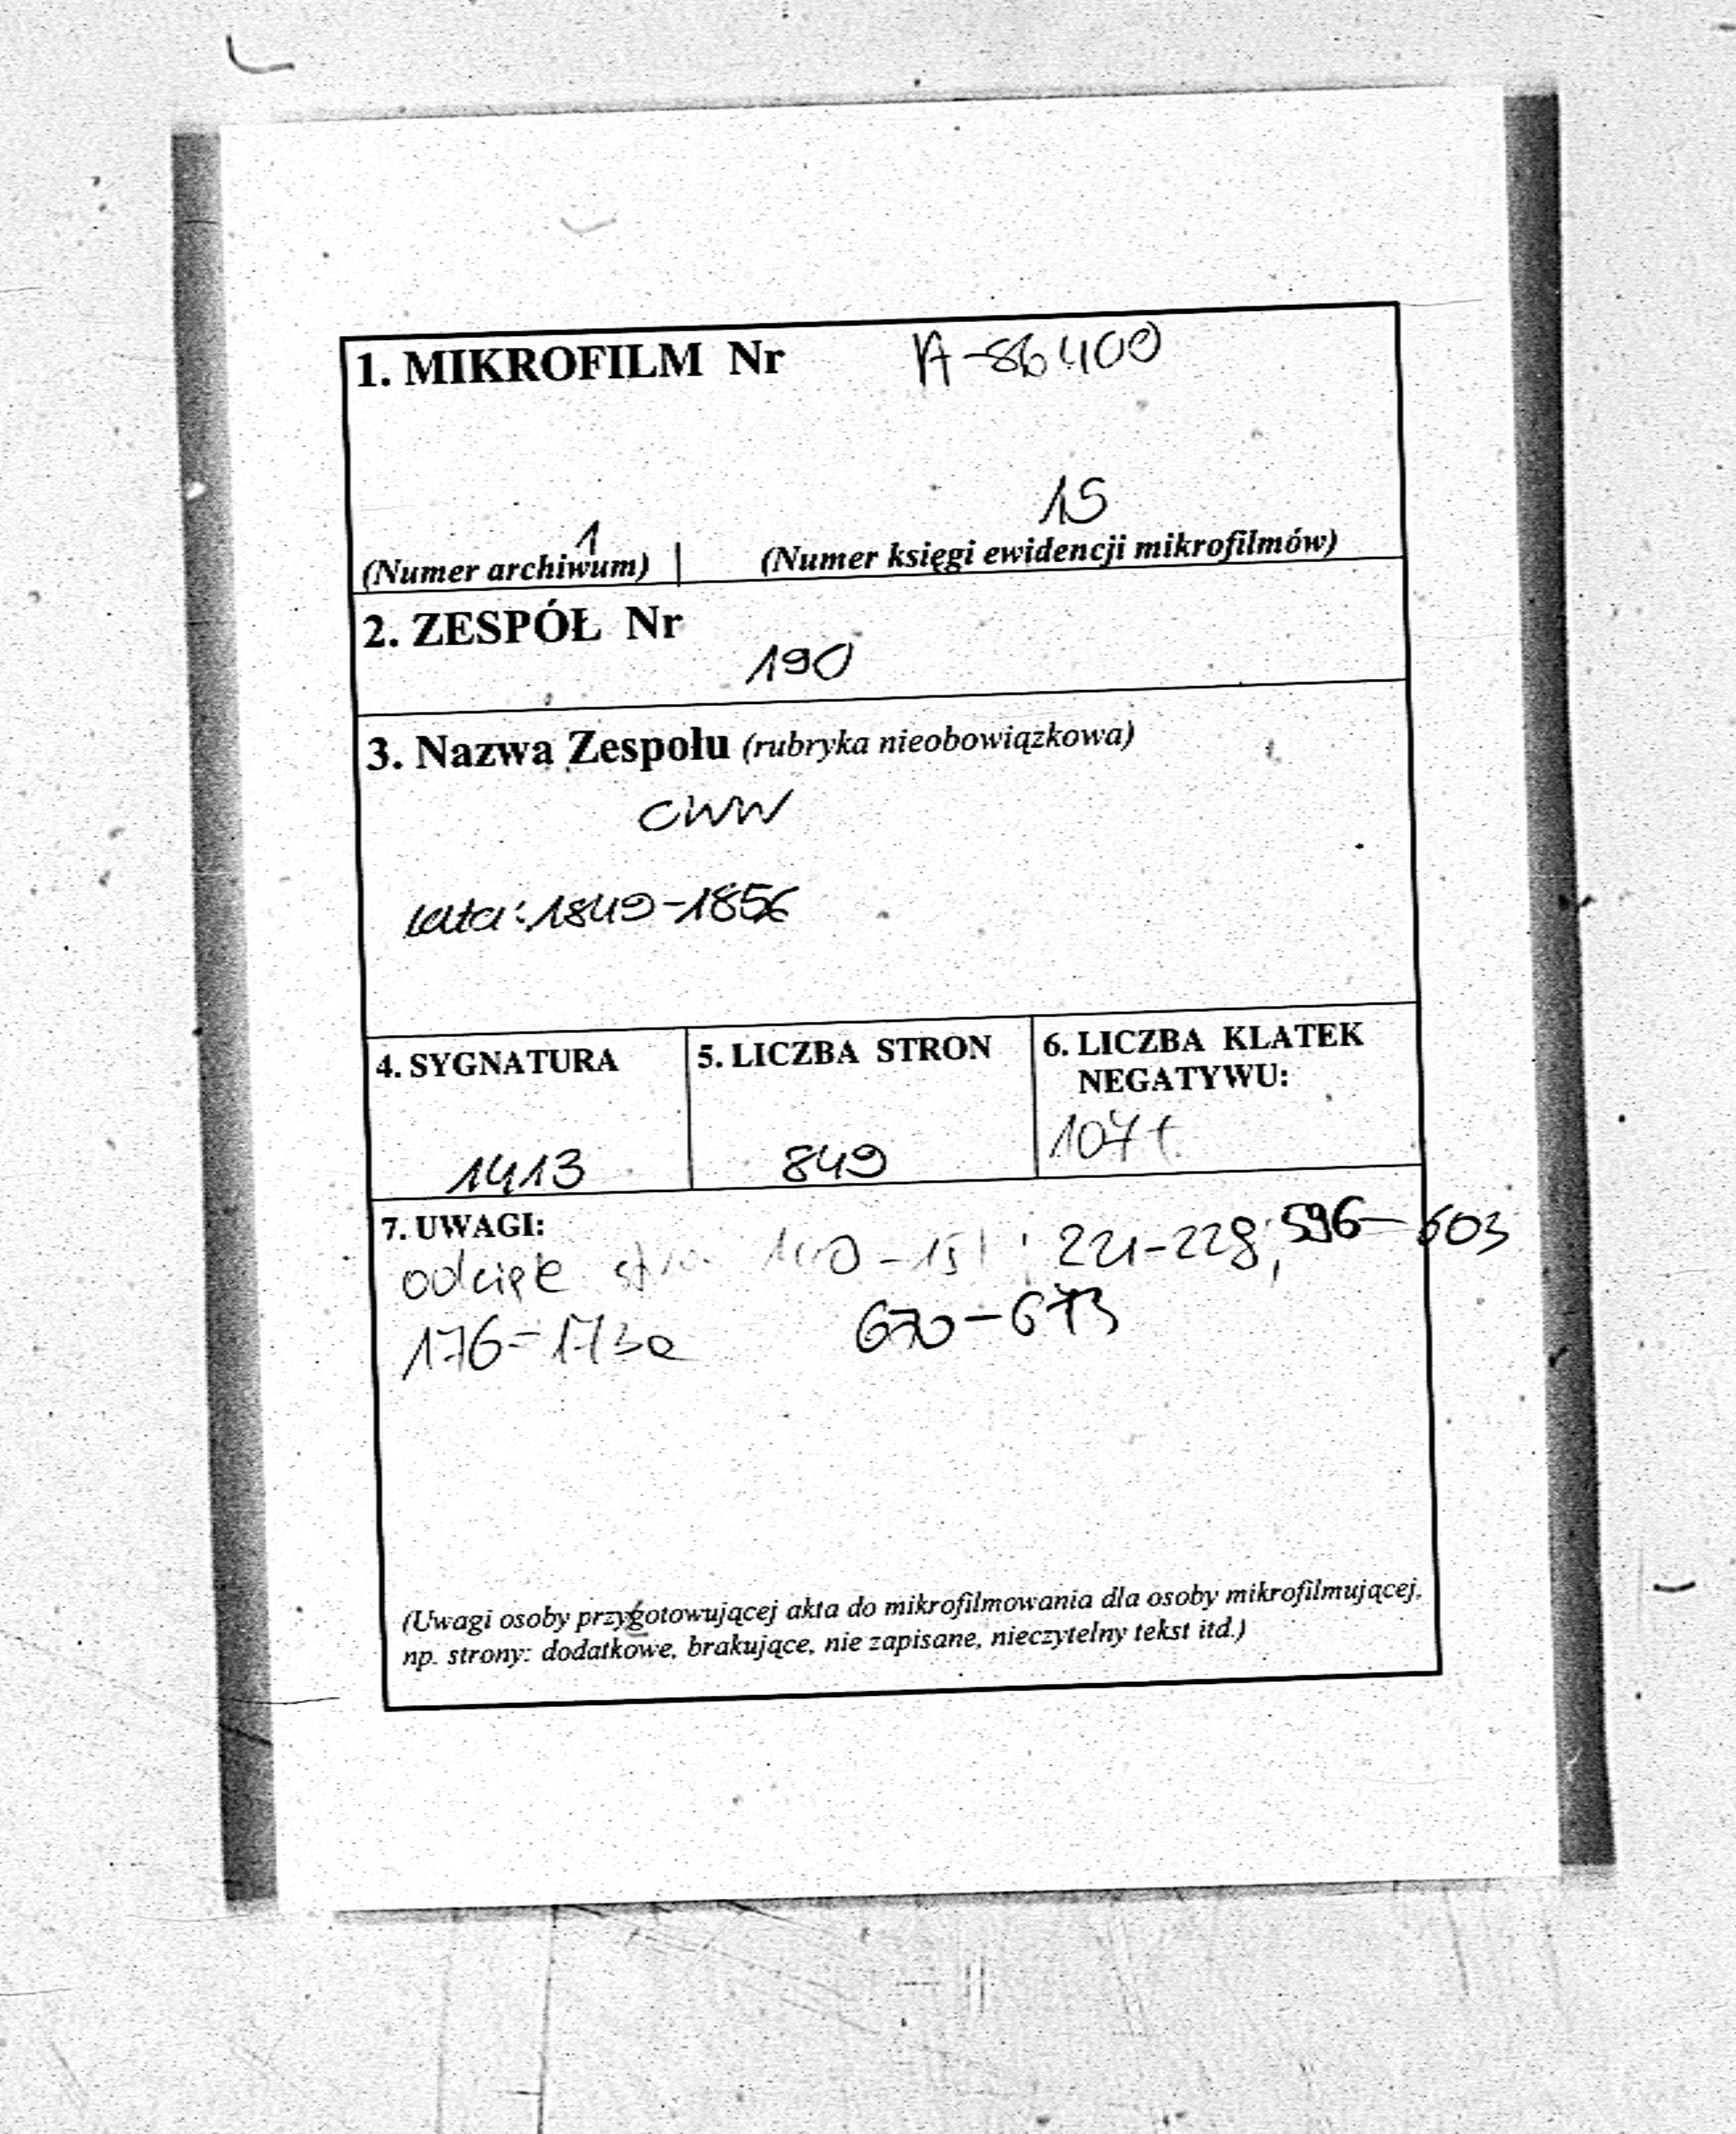 1. MIKROFILM Nr A-86400
15
1
(Numer archiwum) | (Numer księgi ewidencji mikrofilmów)
2. ZESPÓŁ Nr
190
3. Nazwa Zespołu (rubryka nieobowiązkowa)
CWW
lata: 1849-1856
4. SYGNATURA 5. LICZBA STRON 6. LICZBA KLATEK
NEGATYWU:
1413 849
7. UWAGI:
odcięte 221-228; 596-603
176- 670-673
(Uwagi osoby przygotowującej akta do mikrofilmowania dla osoby mikrofilmującej,
np. strony: dodatkowe, brakujące, nie zapisane, nieczytelny tekst itd.)